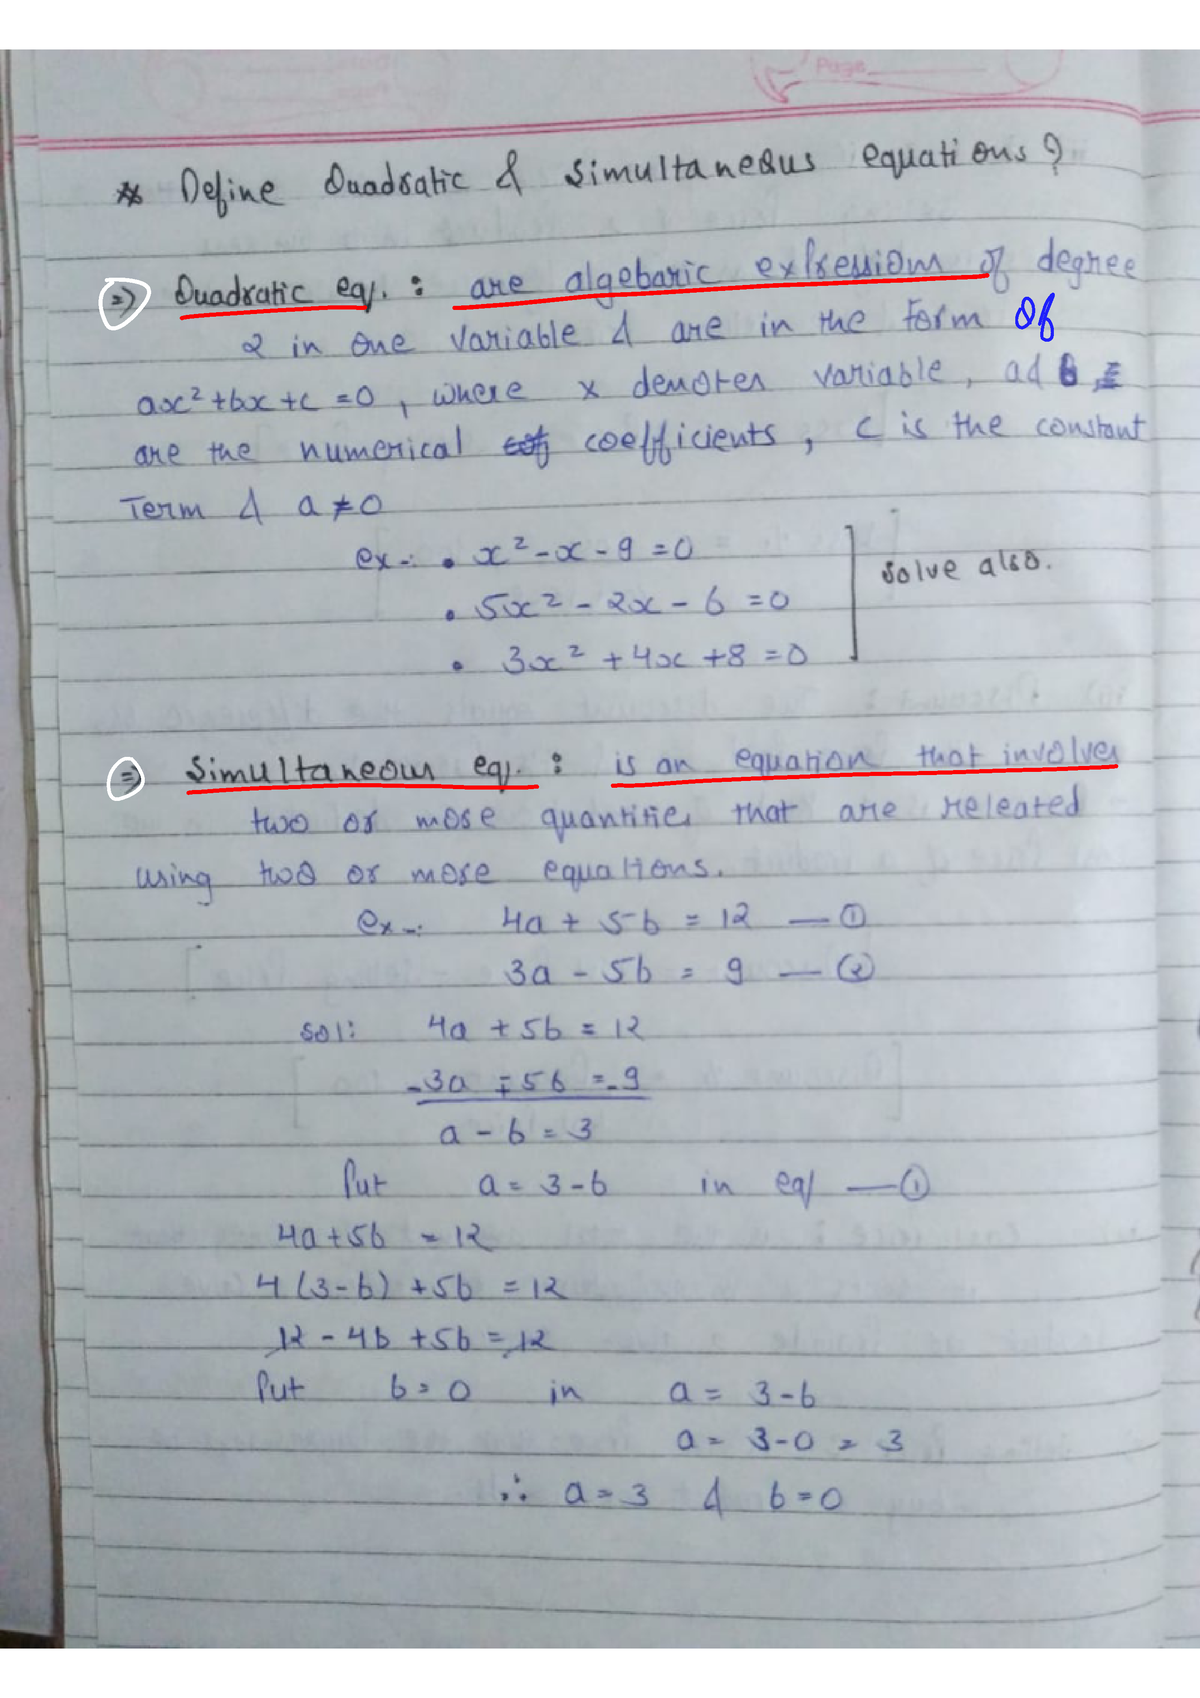 Page
** Define Quadratic & Simultaneous equations ?
=> Quadratic eq. : are algebaric expressions of degree
2 in one variable & are in the form Of
ax² + bx + c = 0 , where x denotes variable, ad b,
are the numerical coefficients , c is the constant
Term & a ≠ 0
ex -: • x² - x - 9 = 0
• 5x² - 2x - 6 = 0
• 3x² + 4x + 8 = 0
Solve also.
=> Simultaneous eq. : is an equation that involves
two or more quantities that are releated
using two or more equations.
ex -: 4a + 5b = 12 — ①
3a - 5b = 9 — ②
Sol: 4a + 5b = 12
-3a ∓ 5b = -9
a - b = 3
Put a = 3 - b in eq — ①
4a + 5b = 12
4 (3 - b) + 5b = 12
12 - 4b + 5b = 12
Put b = 0 in a = 3 - b
a = 3 - 0 = 3
∴ a = 3 & b = 0